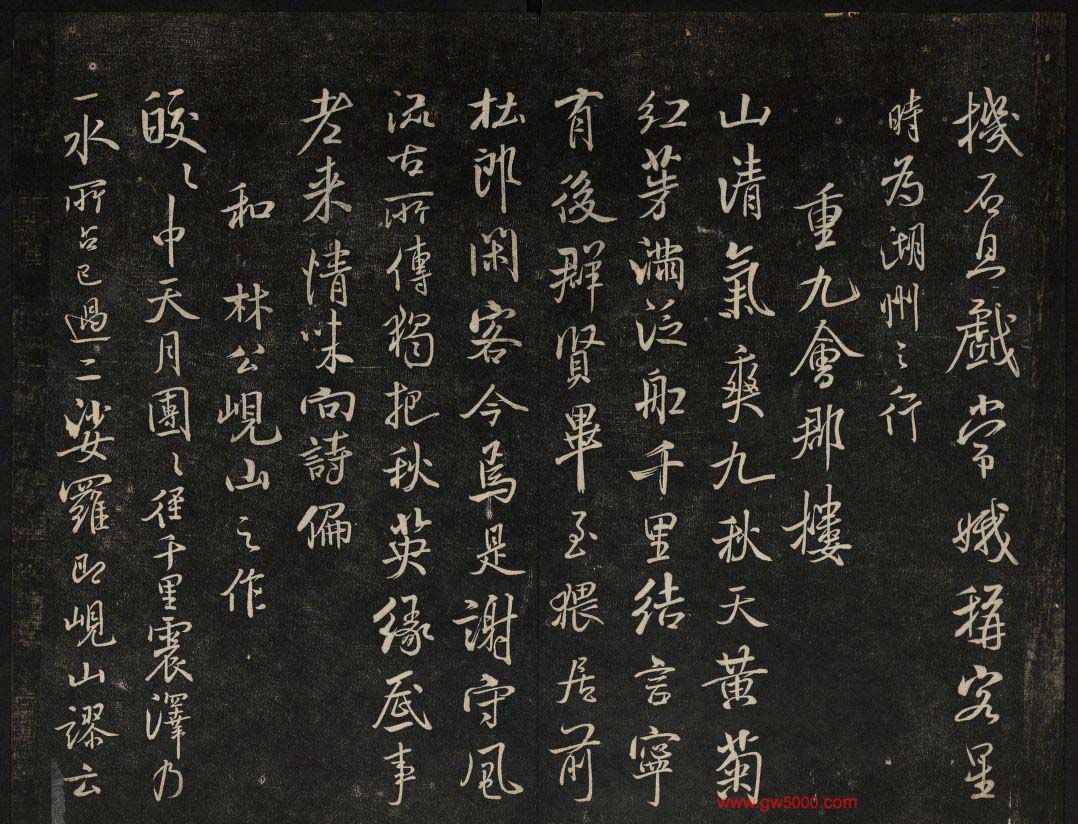 機石息戲常娥稱客星
時為湖州之行
重九會郡樓
山清氣爽九秋天黄菊
紅茱滿泛船千里結言寧
有後群賢畢至猥居前
杜郎閑客今焉是謝守風
流古所傳獨把秋英緣底事
老来情味向詩偏
和林公峴山之作
皎〻中天月團〻徑千里震澤乃
一水所占已過二娑羅即峴山謬云
www.gw5000.com